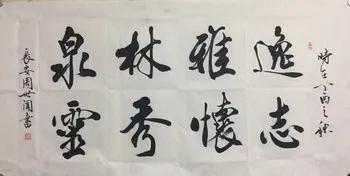 時在丁酉之秋
逸志
雅懷
林秀
泉靈
長安周世書